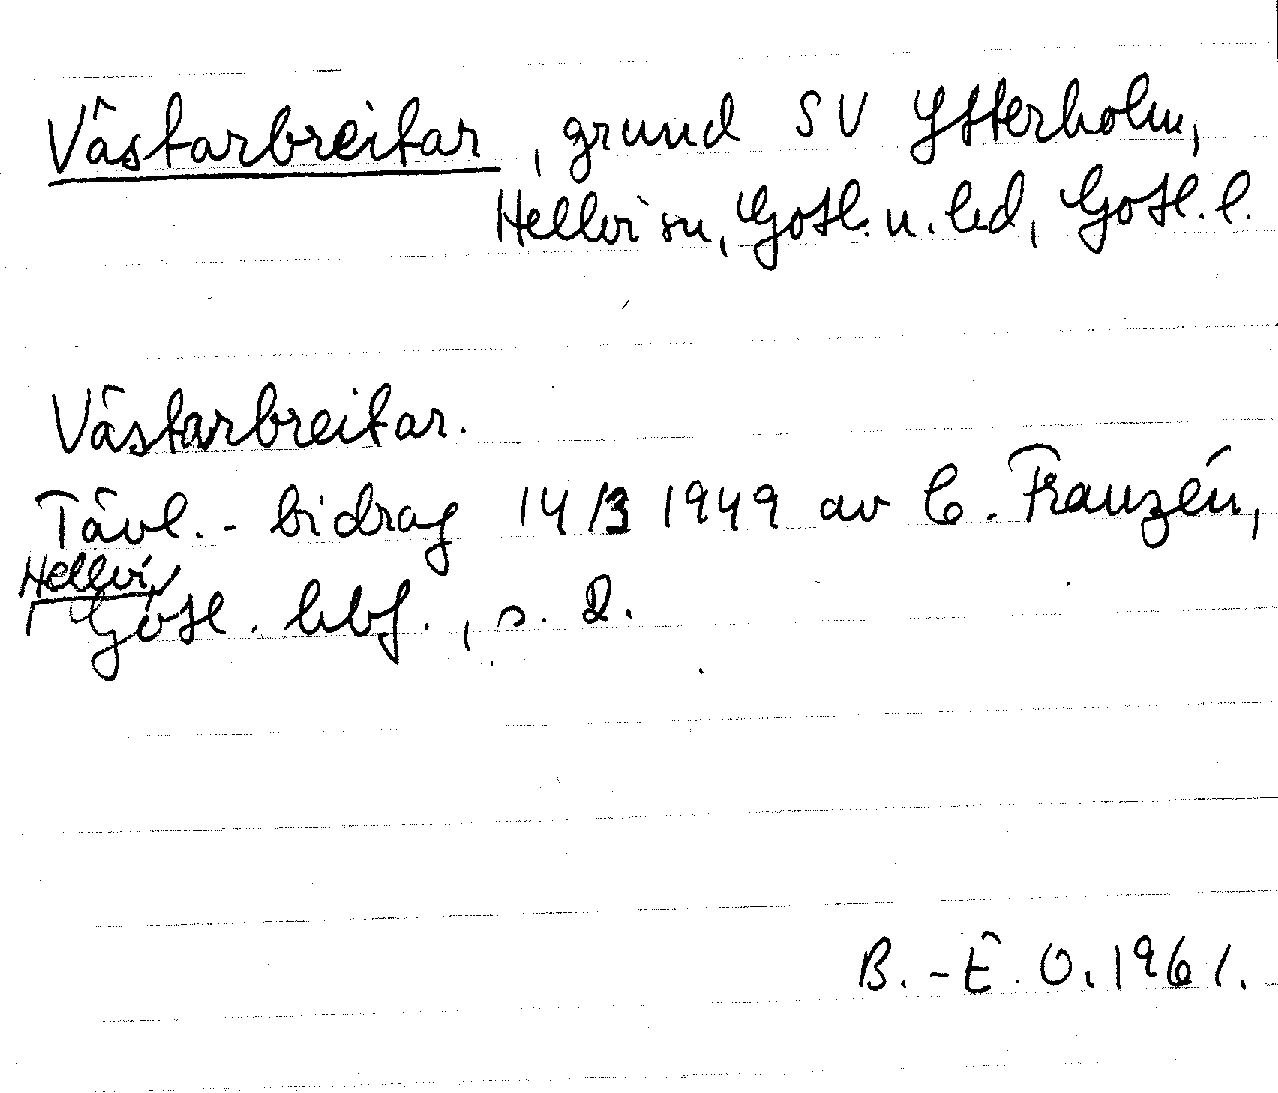 Västarbreitar, grund SV Ytterholm,
Hellvi sn, Gotl. n. hd, Gotl. l.
Västarbreitar.
Tävl.-bidrag 14/3 1949 av C. Franzén,
Hellvi,
Gotl. hbf., s. 2.
B.-E. O. 1961.